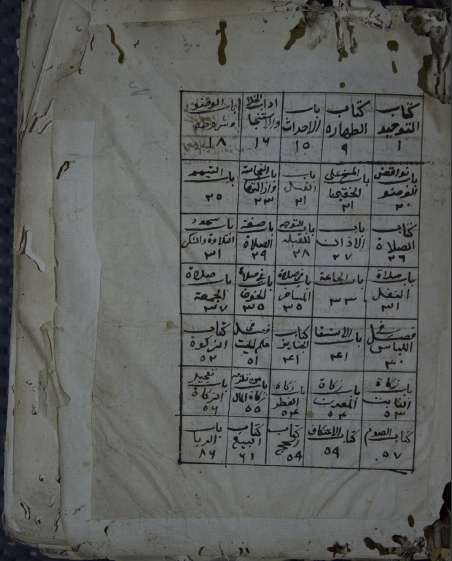 كتاب التوحيد ١
كتاب الطهارة ٩
باب الاحداث ١٥
اداب الخلا والاستنجا ١٦
باب الوضو وشروطه ١٨
باب نواقض الوضو ٢٠
باب المسح على الخفين ٢١
باب الغسل ٢١
باب النجاسة وازالتها ٢٣
باب التيمم ٢٥
كتاب الصلاة ٢٦
باب الاذان ٢٧
باب التوجه للقبلة ٢٨
باب صفة الصلاة ٢٩
باب سجود التلاوة والشكر ٣١
باب صلاة النفل ٣١
باب الجماعة ٣٣
باب صلاة المسافر ٣٥
باب صلاة الخوف ٣٥
باب صلاة الجمعة ٣٧
فصل اللباس ٤٠
باب الاستسقا ٤١
كتاب الجنايز ٤١
فصل ٥١
كتاب الزكوة ٥٢
باب زكاة النابت ٥٣
باب زكاة المعدن ٥٤
باب زكاة الفطر ٥٤
باب من تلزمه زكاة المال ٥٥
باب تعجيل الزكاة ٥٦
كتاب الصوم ٥٧
كتاب الاعتكاف ٥٩
كتاب الحج ٥٩
كتاب البيع ٦١
باب الربا ٨٦